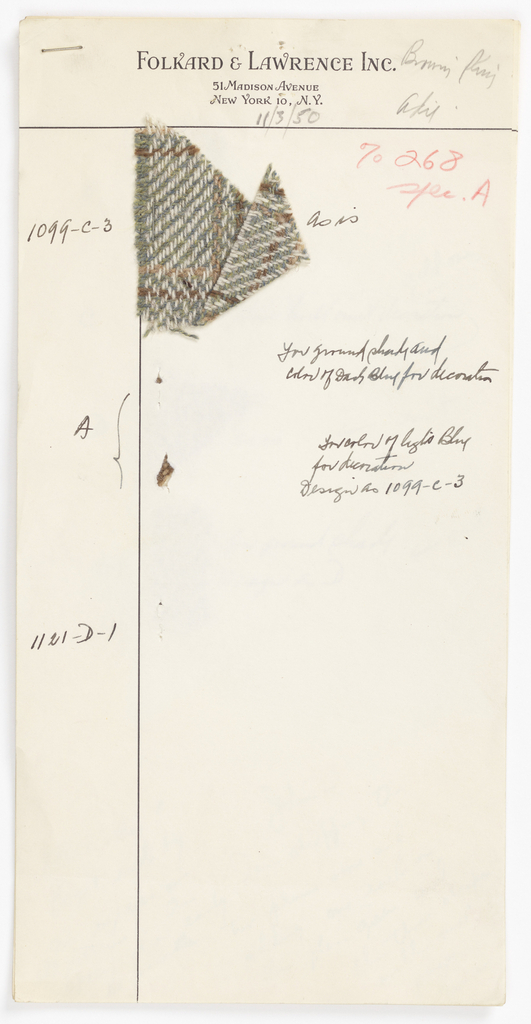 FOLKARD & LAWRENCE INC.
51 MADISON AVENUE
NEW YORK 10, N.Y.
11/3/50
To 268
spec. A
1099-C-3
as is
for ground shade and
color of Dark Blue for decoration
A
for color of light Blue
for decoration
Design as 1099-C-3
1121-D-1